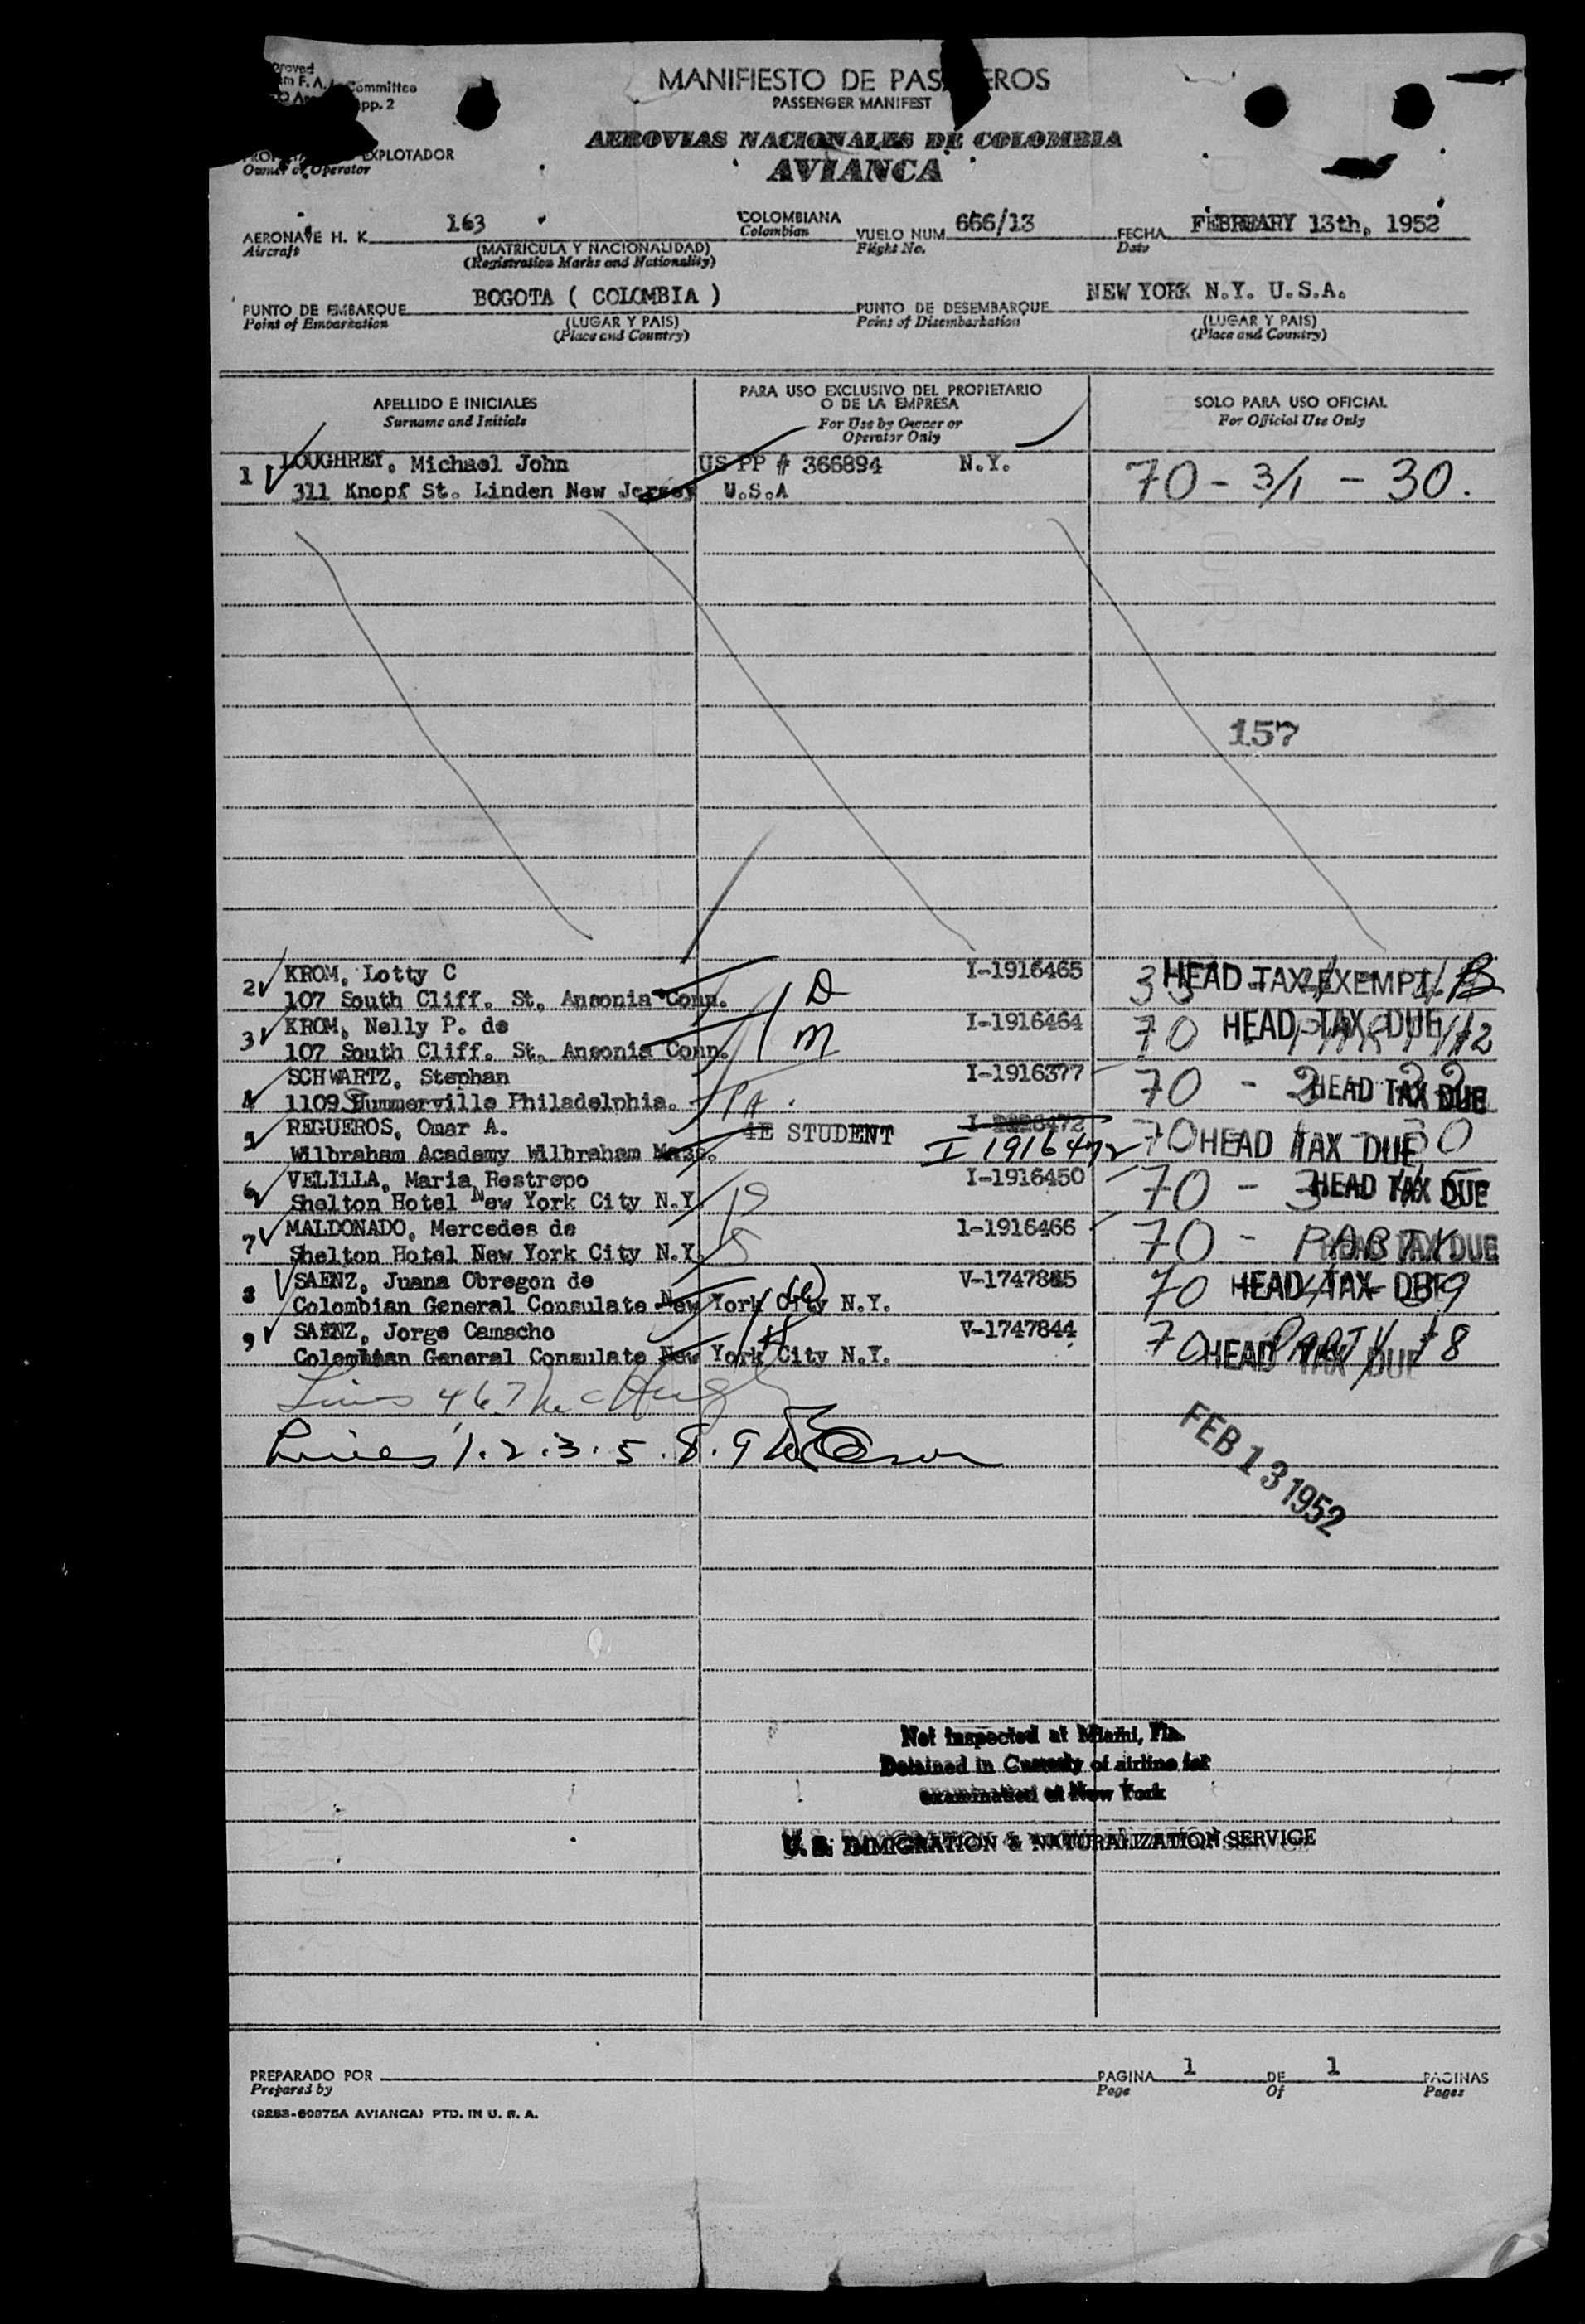 Committee
App. 2
MANIFIESTO DE PAS EROS
PASSENGER MANIFEST
AEROVIAS NACIONALES DE COLOMBIA
AVIANCA
EXPLOTADOR
Owner or Operator
AERONAVE H. K. 163 COLOMBIANA VUELO NUM 666/13 FECHA FEBRUARY 13th, 1952
Aircraft (MATRICULA Y NACIONALIDAD) Colombian Flight No. Date
(Registration Marks and Nationality)
PUNTO DE EMBARQUE BOGOTA ( COLOMBIA ) PUNTO DE DESEMBARQUE NEW YORK N.Y. U.S.A.
Point of Embarkation (LUGAR Y PAIS) Point of Disembarkation (LUGAR Y PAIS)
(Place and Country) (Place and Country)
APELLIDO E INICIALES PARA USO EXCLUSIVO DEL PROPIETARIO SOLO PARA USO OFICIAL
Surname and Initials O DE LA EMPRESA For Official Use Only
For Use by Owner or
Operator Only
1 LOUGHREY, Michael John US PP # 366894 N.Y. 70 - 3/1 - 30.
311 Knopf St. Linden New Jersey U.S.A
157
2 KROM, Lotty C I-1916465 HEAD TAX EXEMPT
107 South Cliff. St, Ansonia Conn. D
3 KROM, Nelly P. de I-1916464 70 HEAD TAX DUE
107 South Cliff. St, Ansonia Conn. M
4 SCHWARTZ, Stephan I-1916377 70 - HEAD TAX DUE
1109 Summerville Philadelphia. PA.
5 REGUEROS, Omar A. 4E STUDENT I 1916472 70 HEAD TAX DUE 30
Wilbraham Academy Wilbraham Mass.
6 VELILLA, Maria Restrepo I-1916450 70 - HEAD TAX DUE
Shelton Hotel New York City N.Y.
7 MALDONADO, Mercedes de 1-1916466 70 - PARTY HEAD TAX DUE
Shelton Hotel New York City N.Y. S
8 SAENZ, Juana Obregon de V-1747845 70 HEAD TAX DUE
Colombian General Consulate New York City N.Y.
9 SAENZ, Jorge Camacho V-1747844 70 PARTY 18 HEAD TAX DUE
Colombian General Consulate New York City N.Y.
Lines 4 6 7 McHugh
Lines 1.2.3.5.8.9
FEB 13 1952
Not inspected at Miami, Fla.
Detained in Custody of airline for
examination at New York
U. S. IMMIGRATION & NATURALIZATION SERVICE
PREPARADO POR PAGINA 1 DE 1 PAGINAS
Prepared by Page Of Pages
(9283-60975A AVIANCA) PTD. IN U. S. A.